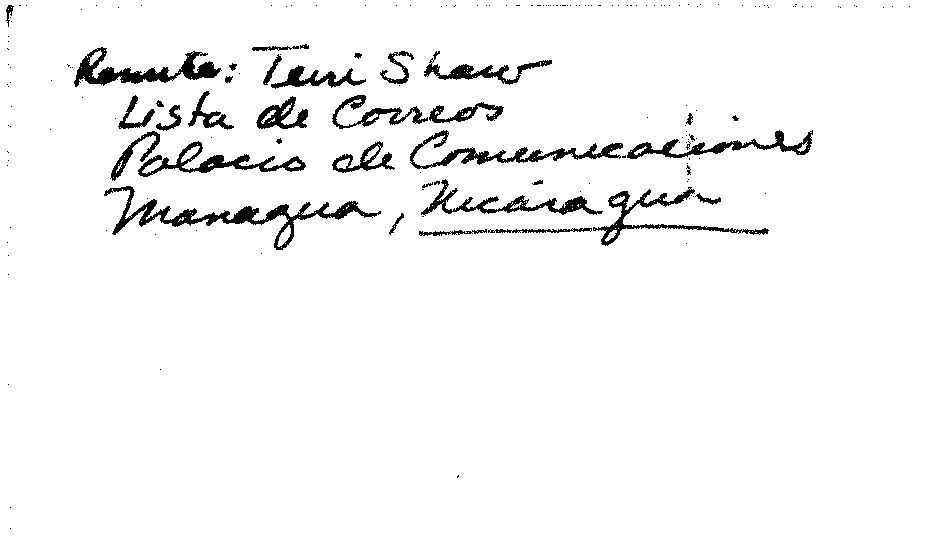 Remite: Terri Shaw
Lista de Correos
Palacio de Comunicaciones
Managua, Nicaragua